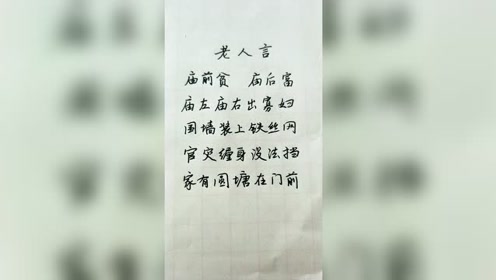 老人言
庙前贫 庙后富
庙左庙右出寡妇
围墙装上铁丝网
官灾缠身没法挡
家有圆塘在门前